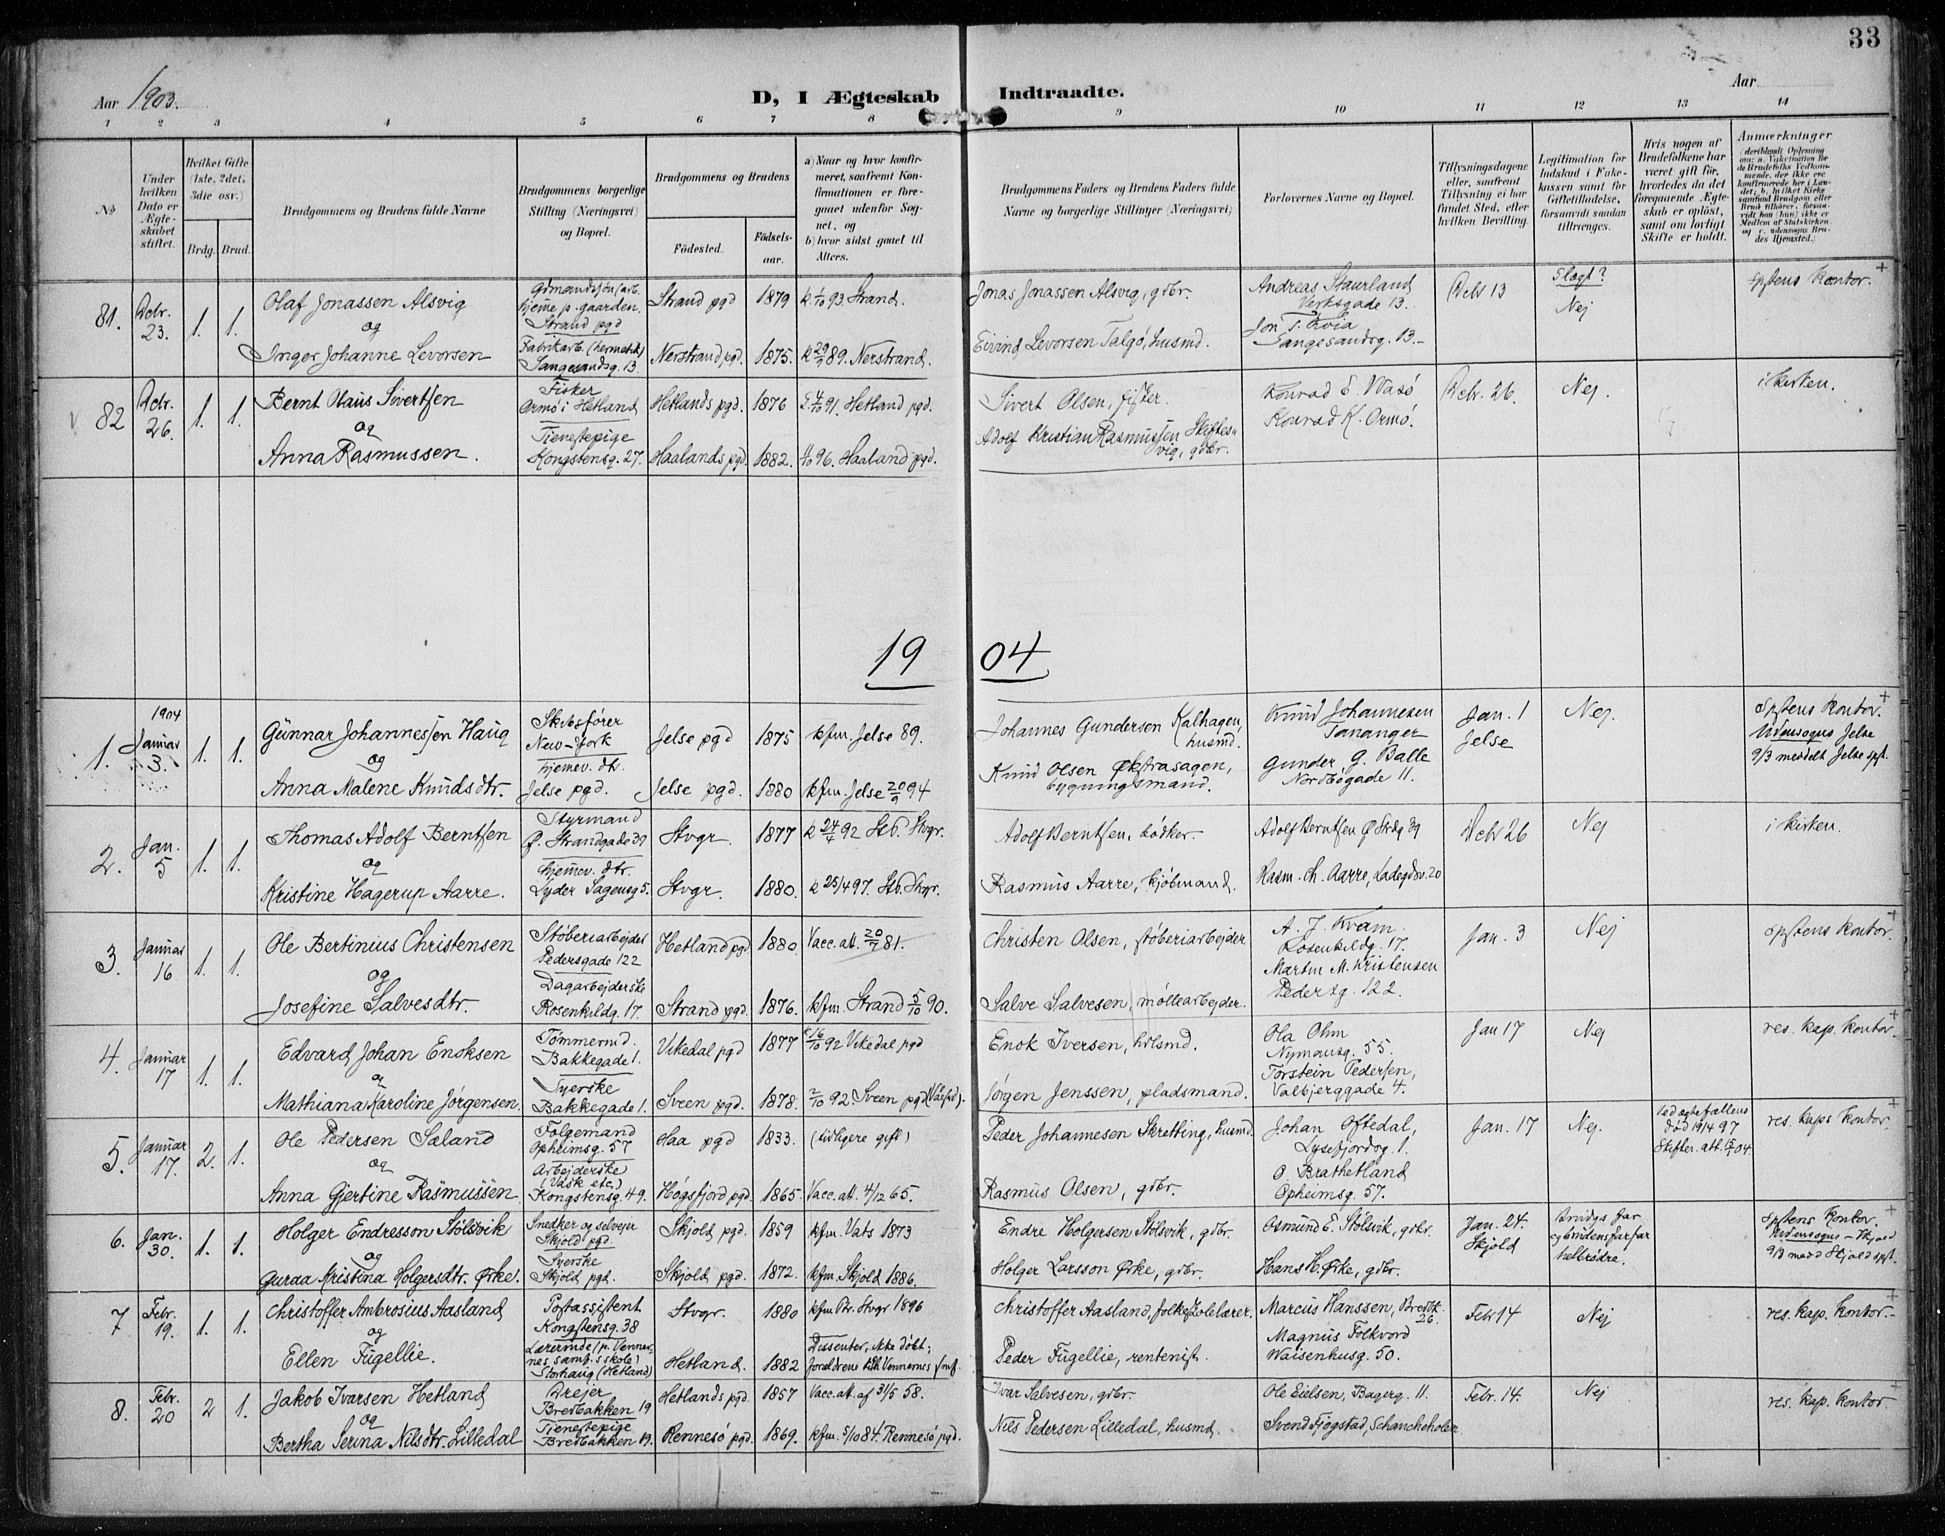 33
Aar 1903.
D, I Ægteskab Indtraadte.
Aar
1 2 3 4 5 6 7 8 9 10 11 12 13 14
No
Under hvilken Dato er Ægteskabet stiftet.
Hvilket Gifte (1ste, 2det, 3die osv.)
Brdg. Brud.
Brudgommens og Brudens fulde Navne
Brudgommens borgerlige Stilling (Næringsvei) og Bopæl.
Brudgommens og Brudens
Födested.
Födsels-aar.
a) Naar og hvor konfirmeret, saafremt Konfirmationen er foregaaet udenfor Sognet, og
b) hvor sidst gaaet til Alters.
Brudgommens Faders og Brudens Faders fulde Navne og borgerlige Stillinger (Næringsvei)
Forlovernes Navne og Bopæl.
Tillysningsdagene eller, saafremt Tillysning ei har fundet Sted, efter hvilken Bevilling.
Legitimation for Indskud i Enkekassen samt for Giftetilladelse, forsaavidt saadan tiltrænges.
Hvis nogen af Brudefolkene har været gift før, hvorledes da det foregaaende Ægteskab er opløst, samt om lovligt Skifte er holdt.
Anmærkninger
81. Dcbr. 23. 1. 1.
Olaf Jonassen Alsvig
og
Inger Johanne Levorsen
hjeme p. gaarden.
Strand pgd
Fabrikarb. (hermetik)
Langesandsg. 13.
Strand pgd 1879
Nerstrand pgd. 1875.
k 1/10 93. Strand.
k 29/9 89. Nerstrand.
Jonas Jonassen Alsvig, gdbr.
Eivind Levorsen Talgø, husmd.
Andreas Staurland
Verksgade 13.
Jon T. Kvia
Langesandsg. 13.
Dcbr 13
Slagt?
Nej
spstens kontor. +
82 Dcbr. 26. 1. 1.
Bernt Olaus Sivertsen
og
Anna Rasmussen.
Fisker
Ormø i Hetland
Tienestepige
Kongstensg. 27.
Hetlands pgd. 1876
Haalands pgd. 1882.
4/10 91. Hetland pgd.
4/10 96. Haaland pgd.
Sivert Olsen, fisker.
Adolf Kristian Rasmussen Skiftesvig, gdbr.
Konrad E. Wasø
Konrad K. Ormø.
Dcbr. 26.
Nej.
i kirken.
19 04
1904
1. Januar 3. 1. 1.
Gunnar Johannessen Haug
og
Anna Malene Knudsdtr.
Skibsfører
New-York
hjemev. dtr.
Jelse pgd.
Jelse pgd 1875
Jelse pgd. 1880
kfm. Jelse 89.
kfm. Jelse 20/9 94
Johannes Gundersen Kalhagen, husmd.
Knud Olsen Økstrasagen, bygningsmand.
Knud Johannesen
Tananger
Gunder G. Balle
Nordbøgade 11.
Jan. 1
Jelse
Nej.
Spstens kontor. +
Udensogns Jelse
9/3 meddelt Jelse spst.
2. Jan. 5 1. 1.
Thomas Adolf Berntsen
og
Kristine Hagerup Aarre.
Styrmand
Ø. Strandgade 39
hjemev. dtr.
Lyder Sagensg 5.
Stvgr. 1877
Stvgr. 1880.
k 24/4 92 Stb. Stvgr.
k 25/4 97. Stb. Stvgr.
Adolf Berntsen, bødker.
Rasmus Aarre, kjøbmand.
Adolf Berntsen Ø Strdg 39
Rasm. Ch. Aarre, Ladegdsv. 20
Dcbr 26
Nej
i kirken.
3. Januar 16 1. 1.
Ole Bertinius Christensen
og
Josefine Salvesdtr.
Støberiarbejder
Pedersgade 122
Dagarbejderske
Rosenkildg. 17.
Hetland pgd. 1880.
Strand pgd. 1876.
Vacc. att. 20/7 81.
kfm. Strand 5/10 90.
Christen Olsen, støberiarbejder.
Salve Salvesen, møllearbejder.
A. J. Kvam.
Rosenkildg. 17.
Martin M. Kristensen
Pedersg. 122.
Jan. 3
Nej
spstens kontor. +
4. Januar 17 1. 1.
Edvard Johan Enoksen
og
Mathiana Karoline Jørgensen.
Tømmermd.
Bakkegade 1.
Syerske
Bakkegade 1.
Vikedal pgd 1877
Sveen pgd. 1878.
k 16/10 92 Vikedal pgd
2/10 92. Sveen pgd
Enok Iversen, husmd.
Jørgen Jenssen, pladsmand.
Ola Ohm
Nymansg. 55.
Torstein Pedersen,
Valbjerggade 4.
Jan 17
Nej
res. kap. kontor. +
5. Januar 17. 2. 1.
Ole Pedersen Saland
og
Anna Gjertine Rasmussen
Følgemand
Opheimsg. 57
Arbejderske
(Vask etc.)
Kongstensg. 49.
Haa pgd 1833.
Høgsfjord pgd. 1865.
(tidligere gift)
Vacc. att. 4/12 65.
Peder Johannesen Skretting, husmd.
Rasmus Olsen, gdbr.
Johan Oftedal,
Lysefjordsg. 1.
O. Brathetland
Opheimsg. 57.
Jan. 17
Nej.
Ved ægtefællens
død 19/4 97
res. kaps kontor. +
6. Jan. 30. 1. 1.
Holger Endresson Stølsvik
og
Guraa Kristina Holgersdtr. Ørke.
Snedker og selvejer
Skjold pgd.
Syerske
Skjold pgd.
Skjold pgd. 1859
Skjold pgd. 1872.
kfm. Vats 1873
kfm. Skjold 1886.
Endre Holgersen Stølsvik, gdbr.
Holger Larsson Ørke, gdbr.
Osmund E. Stølsvik, gdbr.
Hans H. Ørke, gdbr.
Jan. 24.
Skjold
Brudgs far
og brudens farfar
halvbrødre.
spstens kontor. +
Udensogns - Skjold
9/3 medd Skjold spst.
7. Febr. 19. 1. 1.
Christoffer Ambrosius Aasland
og
Ellen Fugellie.
Postassistent
Kongstensg. 38
Lærerinde (p. Vennernes samf.s skole)
Storhaug (Hetland)
Stvgr. 1880
Hetland. 1882
kfm Ptr. Stvgr 1896
Dissenter, ikke døbt;
forældrene tilh Vennernes smf.
Christoffer Aasland, folkeskolelærer.
Peder Fugellie, rentenist.
Marcus Hanssen, Bredbk. 26.
Magnus Folkvord
Waisenhusg. 50.
Febr 14
Nej
res. kap. kontor. +
8. Febr. 20 2 1.
Jakob Ivarsen Hetland
og
Bertha Serina Nilsdtr. Lilledal
Drejer
Bredbakken 19
Tienestepige
Bredbakken 19.
Hetlands pgd. 1857
Rennesø pgd. 1869.
Vacc. att. af 31/5 58.
kfm. 5/10 84. Rennesø pgd.
Ivar Salvesen, gdbr.
Nils Pedersen Lilledal, husmd.
Ole Eielsen, Bagerg. 11.
Svend Fjogstad, Schancheholen
Febr. 14.
Nej
res. kap. kontor. +